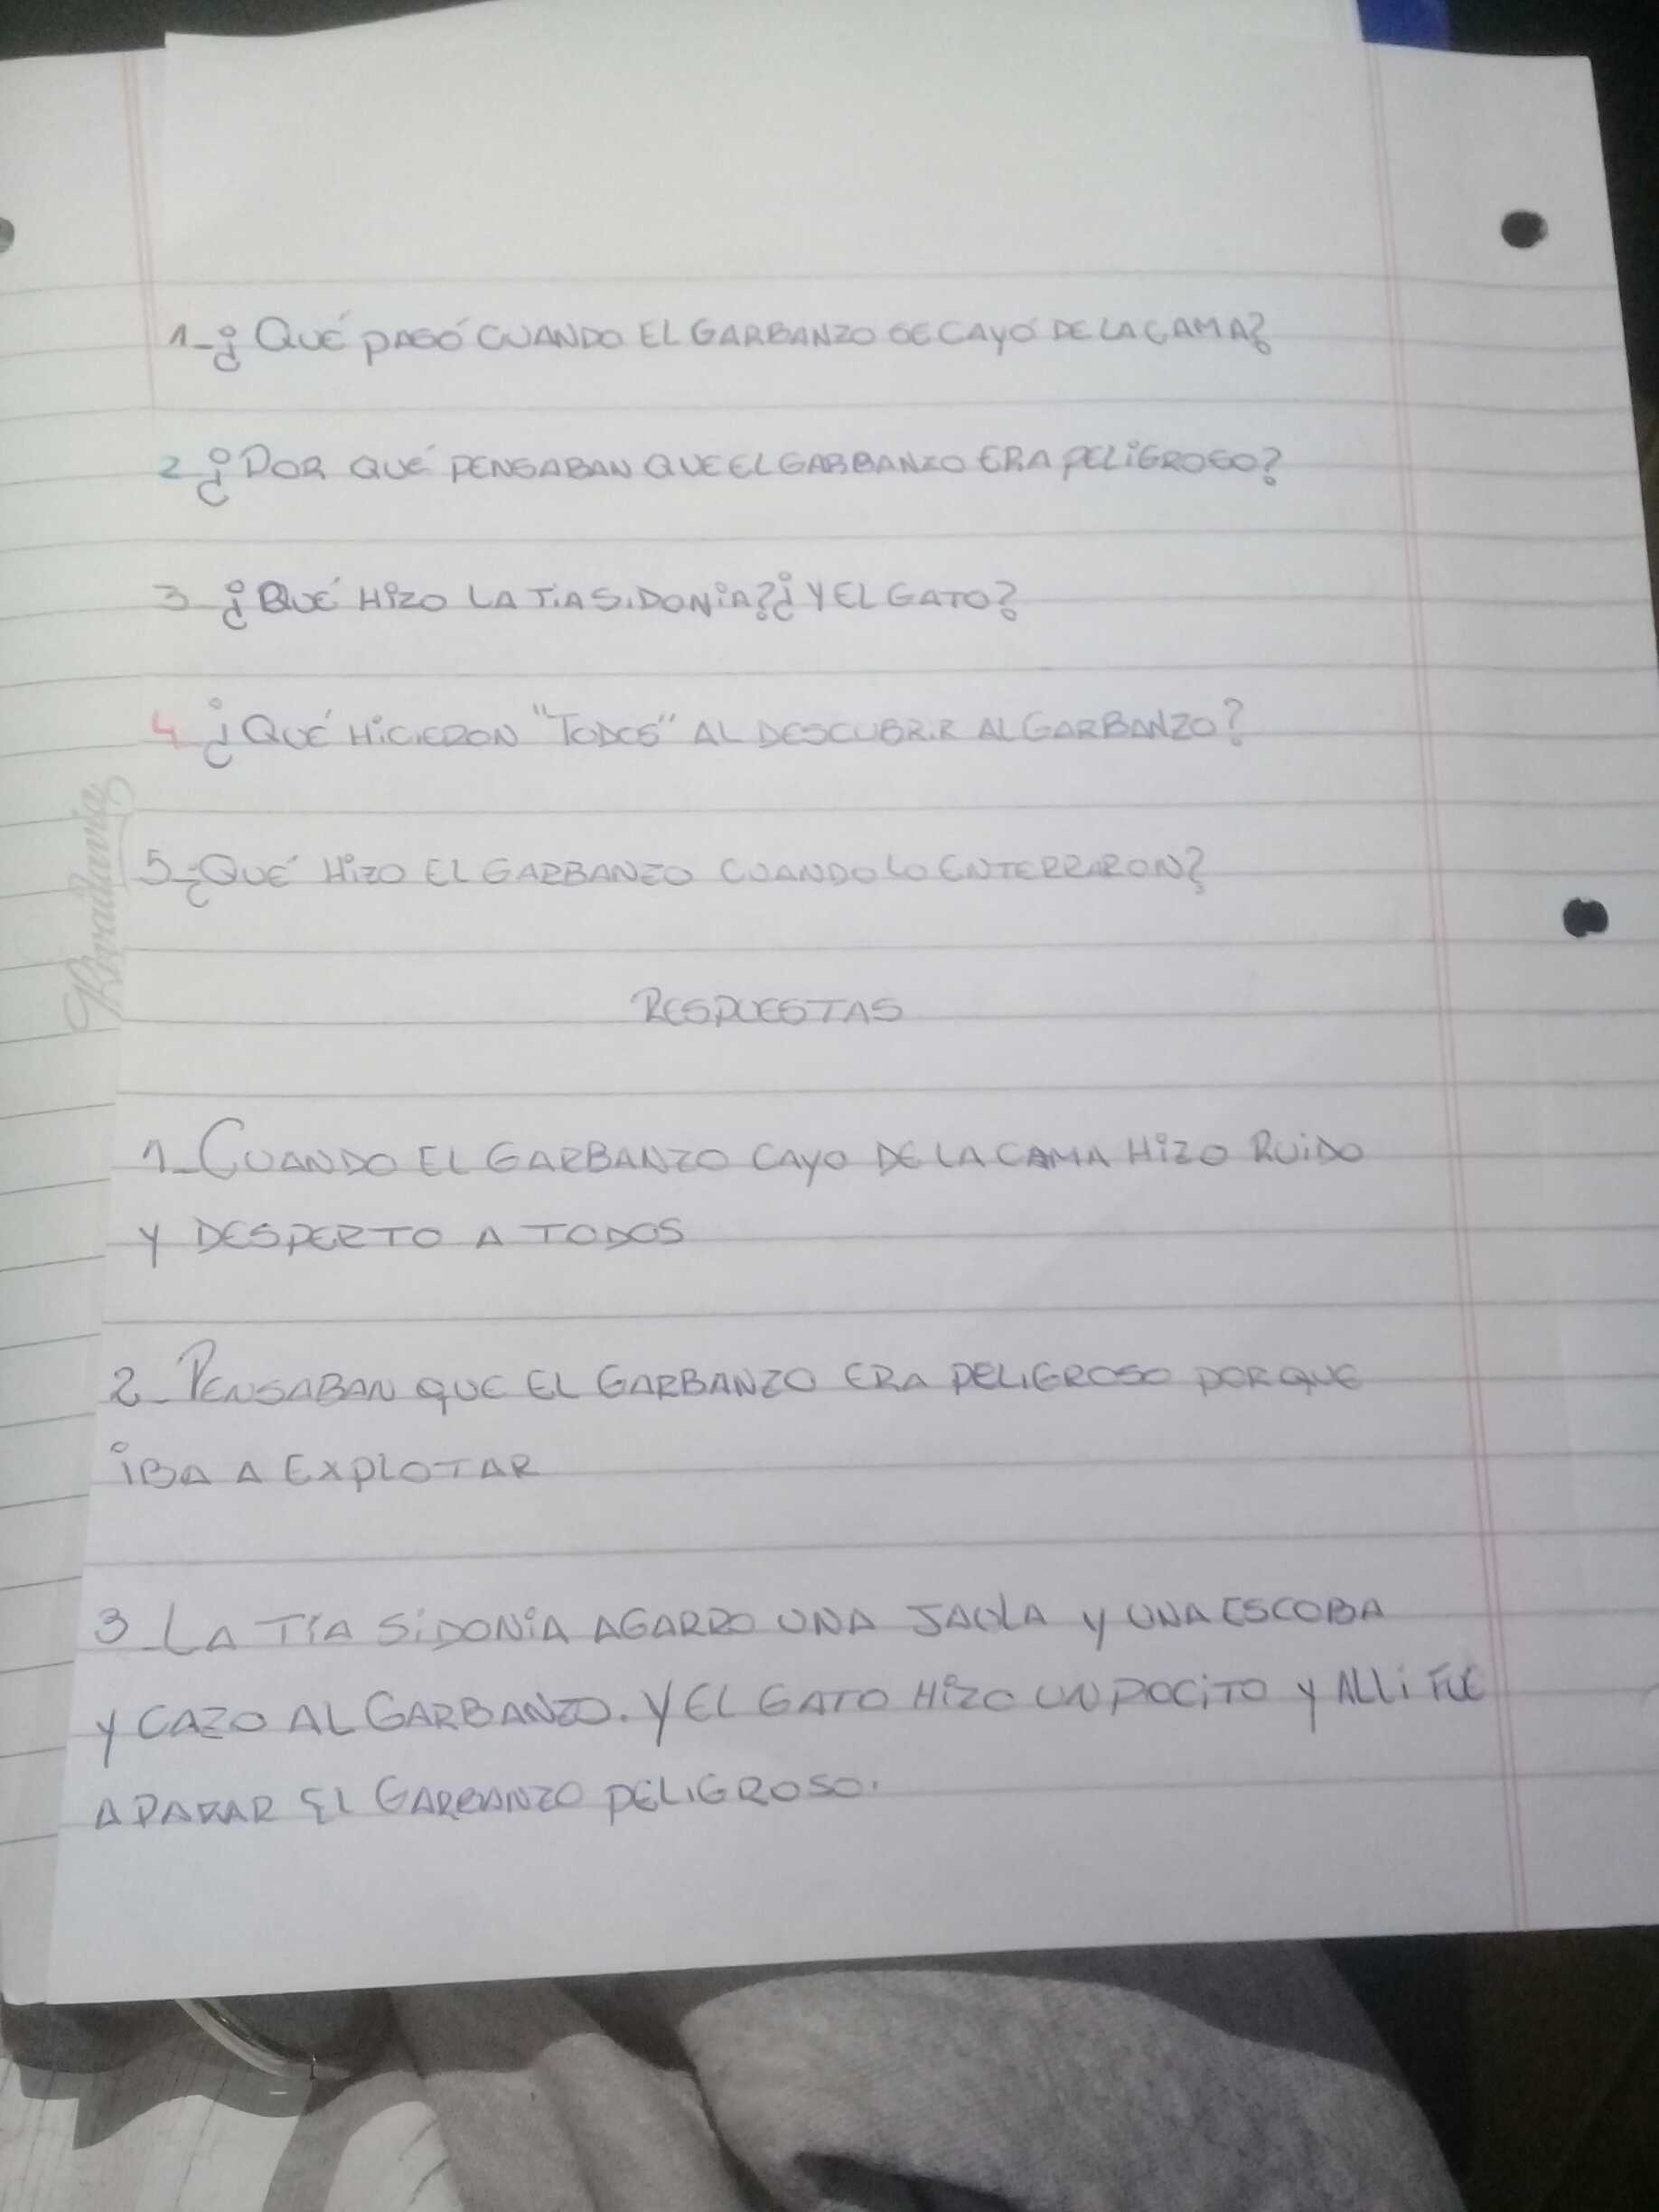 1_¿QUÉ PASÓ CUANDO EL GARBANZO SE CAYÓ DE LA CAMA?
2 ¿POR QUÉ PENSABAN QUE EL GARBANZO ERA PELIGROSO?
3 ¿QUÉ HIZO LA TIA SIDONIA? ¿Y EL GATO?
4 ¿QUÉ HICIERON "TODOS" AL DESCUBRIR AL GARBANZO?
5-¿QUÉ HIZO EL GARBANZO CUANDO LO ENTERRARON?
Rivadavia
RESPUESTAS
1_CUANDO EL GARBANZO CAYO DE LA CAMA HIZO RUIDO
Y DESPERTO A TODOS
2_PENSABAN QUE EL GARBANZO ERA PELIGROSO PORQUE
IBA A EXPLOTAR
3_LA TÍA SIDONIA AGARRO UNA JAULA Y UNA ESCOBA
Y CAZO AL GARBANZO. Y EL GATO HIZO UN POCITO Y ALLI FUE
A PARAR EL GARBANZO PELIGROSO.